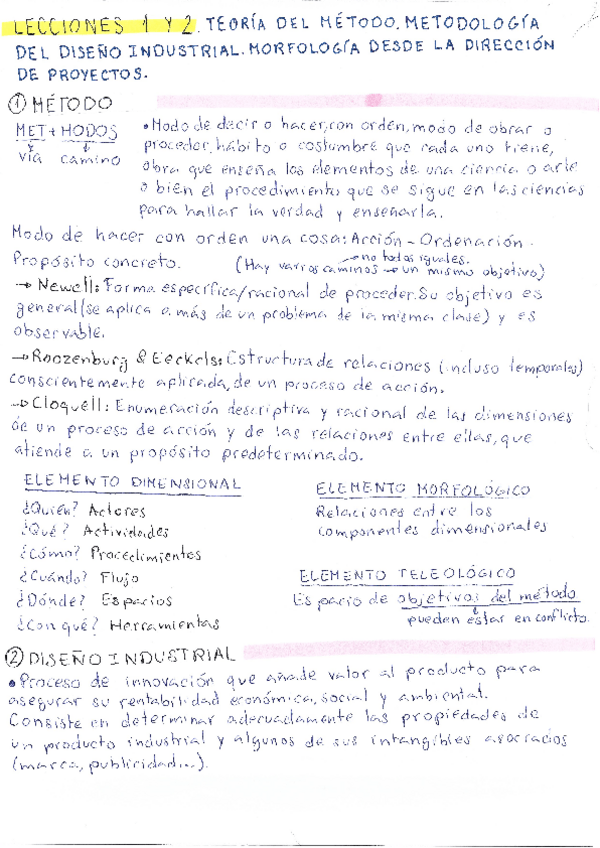 LECCIONES 1 Y 2. TEORÍA DEL MÉTODO. METODOLOGÍA
DEL DISEÑO INDUSTRIAL. MORFOLOGÍA DESDE LA DIRECCIÓN
DE PROYECTOS.
① MÉTODO
MET + HODOS
vía camino
• Modo de decir o hacer, con orden, modo de obrar o
proceder, hábito o costumbre que cada uno tiene,
obra que enseña los elementos de una ciencia o arte
o bien el procedimiento que se sigue en las ciencias
para hallar la verdad y enseñarla.
Modo de hacer con orden una cosa: Acción - Ordenación -
Propósito concreto.
→ no todos iguales.
(Hay varios caminos → un mismo objetivo)
→ Newell: Forma específica/racional de proceder. Su objetivo es
general (se aplica a más de un problema de la misma clase) y es
observable.
→ Roozenburg & Eeckels: Estructura de relaciones (incluso temporales)
conscientemente aplicada, de un proceso de acción.
→ Cloquell: Enumeración descriptiva y racional de las dimensiones
de un proceso de acción y de las relaciones entre ellas, que
atiende a un propósito predeterminado.
ELEMENTO DIMENSIONAL
¿Quién? Actores
¿Qué? Actividades
¿Cómo? Procedimientos
¿Cuándo? Flujo
¿Dónde? Espacios
¿Con qué? Herramientas
ELEMENTO MORFOLÓGICO
Relaciones entre los
componentes dimensionales
ELEMENTO TELEOLÓGICO
Espacio de objetivos del método
pueden estar en conflicto.
② DISEÑO INDUSTRIAL
• Proceso de innovación que añade valor al producto para
asegurar su rentabilidad económica, social y ambiental.
Consiste en determinar adecuadamente las propiedades de
un producto industrial y algunos de sus intangibles asociados
(marca, publicidad...).